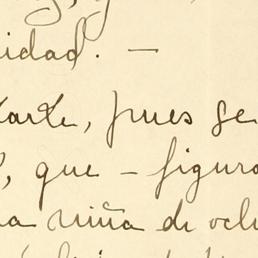 idad. —
tarte, pues se
, que — figura
a niña de och